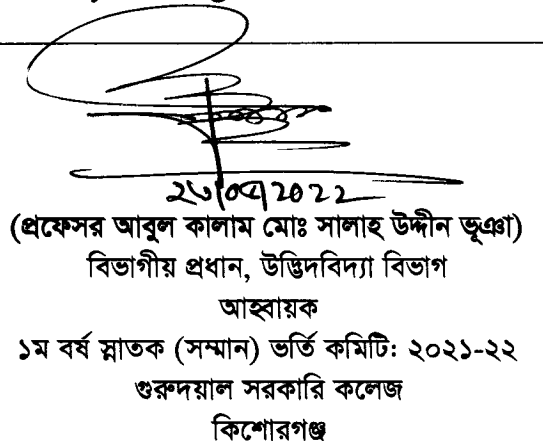 (প্রফেসর আবুল কালাম মোঃ সালাহ উদ্দীন ভূঞা)
বিভাগীয় প্রধান, উদ্ভিদবিদ্যা বিভাগ
আহবায়ক
১ম বর্ষ স্নাতক (সম্মান) ভর্তি কমিটি: ২০২১-২২
গুরুদয়াল সরকারি কলেজ
কিশোরগঞ্জ